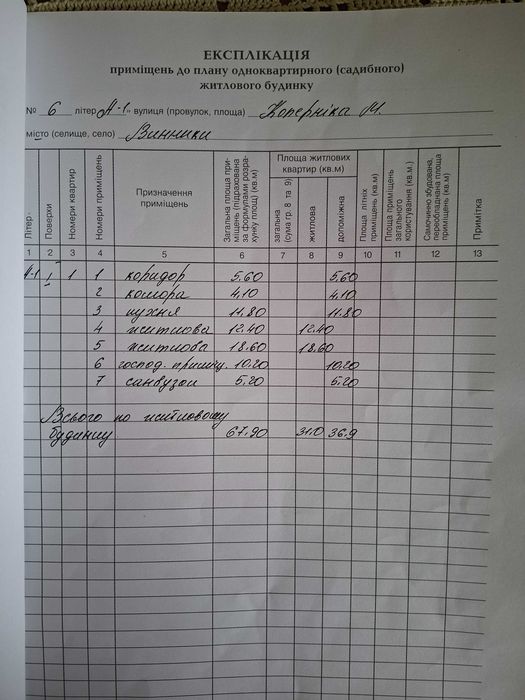 ЕКСПЛІКАЦІЯ
приміщень до плану одноквартирного (садибного)
житлового будинку
№ 6 літер „А-1„ вулиця (провулок, площа) Коперніка М.
місто (селище, село) Винники
Літер Поверхи Номери квартир Номери приміщень Призначення приміщень Загальна площа приміщень (підрахована за формулами розрахунку площ) (кв.м) Площа житлових квартир (кв.м) загальна (сума гр. 8 та 9) житлова допоміжна Площа літніх приміщень (кв.м) Площа приміщень загального користування (кв.м.) Самочинно збудована, переобладнана площа приміщень (кв.м) Примітка
1 2 3 4 5 6 7 8 9 10 11 12 13
А-1 1 1 1 коридор 5.60 5.60
2 комора 4.10 4.10
3 кухня 11.80 11.80
4 житлова 12.40 12.40
5 житлова 18.60 18.60
6 господ. приміщ. 10.20 10.20
7 санвузол 5.20 5.20
Всього по житловому
будинку 67.90 31.0 36.9